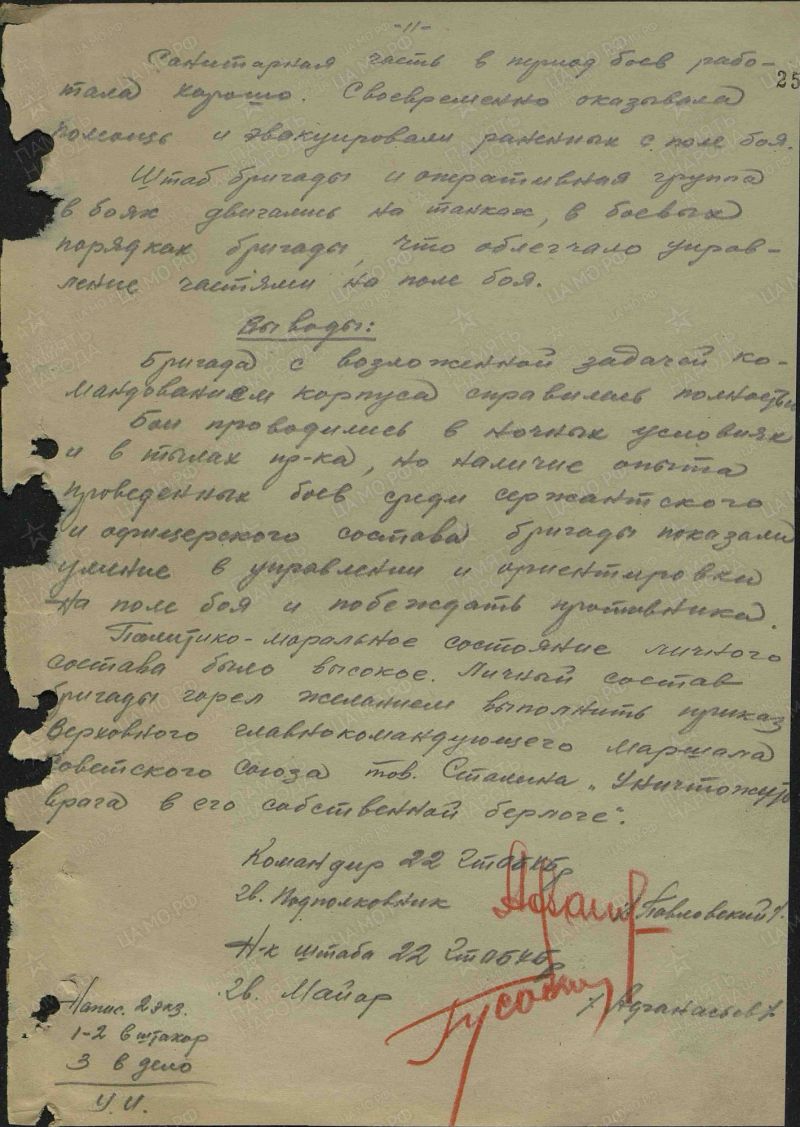 -11-
25
Санитарная часть в период боев рабо-
тала хорошо. Своевременно оказывала
помощь и эвакуировали раненных с поле боя.
Штаб бригады и оперативная группа
в боях двигались на танках, в боевых
порядках бригады, что облегчало управ-
ление частями на поле боя.
Выводы:
Бригада с возложенной задачей ко-
мандованием корпуса справилась полностью
Бои проводились в ночных условиях
и в тылах пр-ка, но наличие опыта
проведенных боев среди сержантского
и офицерского состава бригады показали
умение в управлении и ориентировки
на поле боя и побеждать противника.
Политико-моральное состояние личного
состава было высокое. Личный состав
бригады горел желанием выполнить приказ
Верховного главнокомандующего маршала
Советского Союза тов. Сталина „Уничтожить
врага в его собственной берлоге".
Командир 22 Гтбр
Гв. Подполковник /Павловский/.
Н-к штаба 22
Гв. Майор /Афанасьев/
Напис. 2 экз.
1-2 в штакор
3 в дело
У.И.